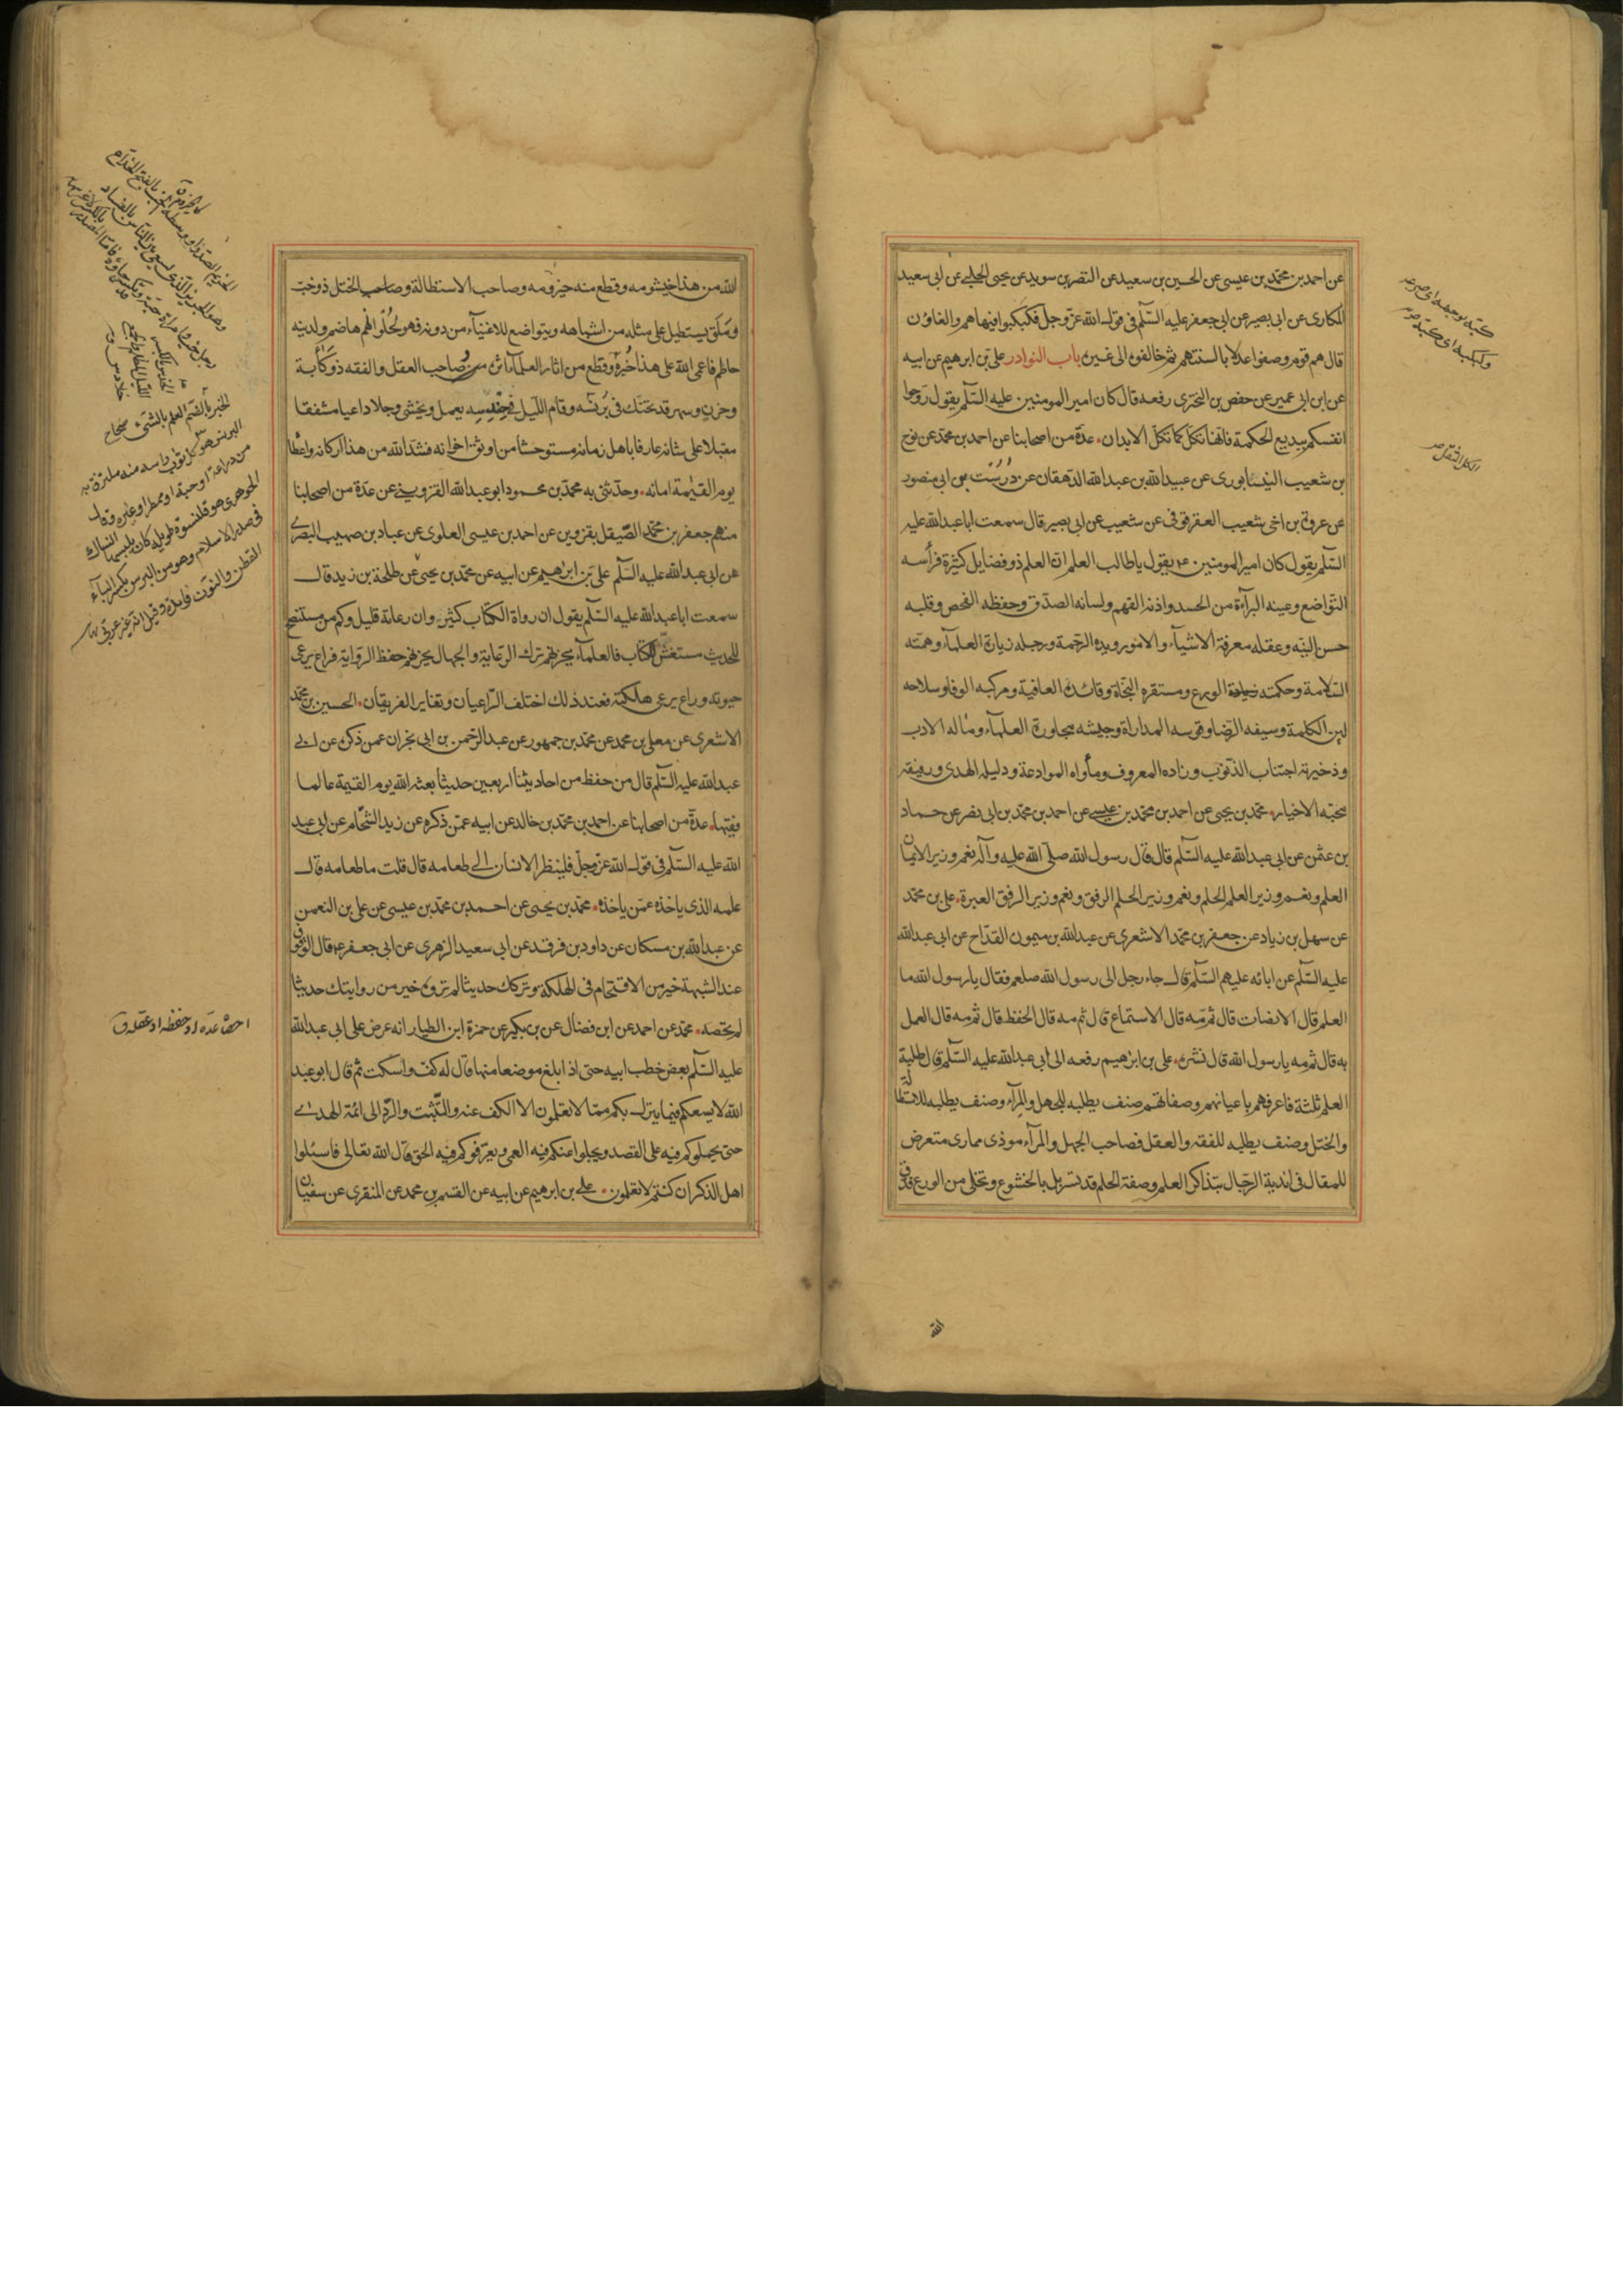 عن احمد بن محمد بن عيسى عن الحسين بن سعيد عن النضر بن سويد عن يحيى الحلبي عن ابى سعيد
المكارى عن ابى بصير عن ابى جعفر عليه السّلم فى قوله الله عزّ وجل فكبكبوا فيها هم والغاون
قال هم قوم وصفوا عدلا بالسنتهم ثم خالفوه الى غيره باب النوادر علىّ بن ابرهيم عن ابيه
عن ابن ابى عمير عن حفص بن البخترى رفعه قال كان امير المومنين عليه السّلم يقول روّحوا
انفسكم ببديع الحكمة فانّها تكلّ كما تكلّ الابدان عدّة من اصحابنا عن احمد بن محمّد عن نوح
بن شعيب النيسابورى عن عبيد الله بن عبدالله الدهقان عن دُرُسْت بن ابى منصور
عن عروة بن اخى شعيب العقرقوفى عن شعيب عن ابى بصير قال سمعت ابا عبدالله عليه
السّلم يقول كان امير المومنين ع يقول يا طالب العلم ان العلم ذو فضايل كثيرة فرأسه
التواضع وعينه البرآءة من الحسد واذنه الفهم ولسانه الصدق وحفظه الفحص وقلبه
حسن النيّة وعقله معرفة الاشيآء والامور ويده الرّحمة ورجله زيارة العلمآء وهمّته
السّلامة وحكمته الورع ومستقره النجّاة وقائده العافية ومركبه الوفا وسلاحه
لين الكلمة وسيفه الرّضا وقوسه المداراة وجيشه محاورة العلمآء وماله الادب
وذخيرته اجتناب الذّنوب وزاده المعروف ومأواه الموادعة ودليله الهدى ورفيقه
محبّة الاخيار محمّد بن يحيى عن احمد بن محمّد بن عيسى عن احمد بن محمّد بن ابى نصر عن حماد
بن عثمن عن ابى عبدالله عليه السّلم قال قال رسول الله صلّى الله عليه وآله نعم وزير الايمان
العلم ونعم وزير العلم الحلم ونعم وزير الحلم الرفق ونعم وزير الرفق العبرة على بن محمّد
عن سهل بن زياد عن جعفر بن محمّد الاشعرى عن عبدالله بن ميمون القدّاح عن ابى عبدالله
عليه السّلم عن ابائه عليهم السّلم قال جاء رجل الى رسول الله صلعم فقال يا رسول الله ما
العلم قال الانصات قال ثمّ مه قال الاستماع قال ثم مه قال الحفظ قال ثمّ مه قال العمل
به قال ثمّ مه يا رسول الله قال نشره على بن ابرهيم رفعه الى ابى عبدالله عليه السّلم قال طلبة
العلم ثلثة فاعرفهم باعيانهم وصفاتهم صنف يطلبه للجهل والمرآء وصنف يطلبه للاستطالة
والختل وصنف يطلبه للفقه والعقل فصاحب الجهل والمرآء موذى ممارى متعرض
للمقال فى اندية الرّجال بتذاكر العلم وصفة الحلم قد تسربل بالخشوع وتخلى من الورع فدق
الله
كبّه لوجهه اى صرعه
وكبكبه اى كبّه
الكلّ الثقل
الله من هذا خيشومه وقطع منه حيزومه وصاحب الاستطالة وصاحب الختل ذو خبّ
وملق يستطيل على مثله من اشباهه ويتواضع للاغنيآء من دونه فهو لحلوائهم هاضم ولدينه
حاطم فاعمى الله على هذا خُبره وقطع من اثار العلمآء اثره وصاحب العقل والفقه ذو كأبة
وحزن وسهر قد تحنّك فى بُرنُسه وقام اللّيل فى حِنْدِسِه يعمل ويخشى وجلا داعيا مشفقا
مقبلا على شانه عارفا باهل زمانه مستوحشا من اوثق اخوانه فشدّ الله من هذا اركانه واعطا
يوم القيمة امانه وحدثنى به محمّد بن محمود ابو عبدالله القزوينى عن عدّة من اصحابنا
منهم جعفر بن محمّد الصّيقل بقزوين عن احمد بن عيسى العلوى عن عباد بن صهيب البصرى
عن ابى عبدالله عليه السّلم على بن ابرهيم عن ابيه عن محمّد بن يحيى عن طلحة بن زيد قال
سمعت ابا عبدالله عليه السّلم يقول ان رواة الكتاب كثير وان رعاته قليل وكم من مستنصح
للحديث مستغش للكتاب فالعلمآء يحزنهم ترك الرّعاية والجهال يحزنهم حفظ الرّواية فراع يرعى
حيوته وراع يرعى هلكته فعند ذلك اختلف الرّاعيان وتغاير الفريقان الحسين بن محمّد
الاشعرى عن معلى بن محمد عن محمّد بن جمهور عن عبد الرّحمن بن ابى نجران عمن ذكره عن ابى
عبدالله عليه السّلم قال من حفظ من احاديثنا اربعين حديثا بعثه الله يوم القيمة عالما
فقيها عدّة من اصحابنا عن احمد بن محمّد بن خالد عن ابيه عمّن ذكره عن زيد الشّحّام عن ابى عبد
الله عليه السّلم فى قوله الله عزّ وجلّ فلينظر الانسان الى طعامه قال قلت ما طعامه قال
علمه الذى ياخذه عمّن ياخذه محمّد بن يحيى عن احمد بن محمّد بن عيسى عن على بن النعمن
عن عبدالله بن مسكان عن داود بن فرقد عن ابى سعيد الزهرى عن ابى جعفر ع قال الوقوف
عند الشبهة خير من الاقتحام فى الهلكة وتركك حديثا لم تروه خير من روايتك حديثا
لم تحصه محمّد عن احمد عن ابن فضال عن بن بكير عن حمزة ابن الطيار انه عرض على ابى عبدالله
عليه السّلم بعض خطب ابيه حتى اذا بلغ موضعا منها قال له كفّ واسكت ثم قال ابو عبد
الله لا يسعكم فيما ينزل بكم ممّا لا تعلمون الا الكف عنه والتّثبت والردّ الى ائمّة الهدى
حتى يحملوكم فيه على القصد ويجلوا عنكم فيه العمى ويعرّفوكم فيه الحق قال الله تعالى فاسئلوا
اهل الذكر ان كنتم لا تعلمون على بن ابرهيم عن ابيه عن القسم بن محمد عن المنقرى عن سفيان
الخبر بالضم العلم بالشئ صحاح
البرنس هو كل ثوب راسه منه ملتزق به
من دراعة او جبة او ممطر او غيره وقال
الجوهرى هو قلنسوة طويلة كان يلبسها النساك
فى صدر الاسلام وهو من البرس بكسر البآء
القطن والنون زايدة وقيل انه غير عربى
احصاه عدّه او حفظه او عقله ق